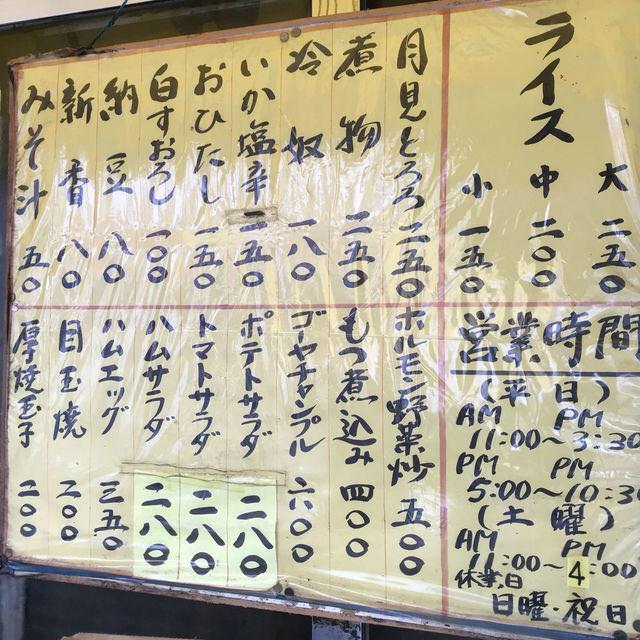 ライス
大 二五〇
中 二〇〇
小 一五〇
月見とろろ 二五〇
煮物 二五〇
冷奴 一八〇
いか塩辛 二五〇
おひたし 一五〇
白すおろし 一〇〇
納豆 八〇
新香 八〇
みそ汁 五〇
営業時間
(平日)
AM PM
11:00〜3:30
PM PM
5:00〜10:30
(土曜)
AM PM
11:00〜4:00
休業日
日曜・祝日
ホルモン野菜炒 五〇〇
もつ煮込み 四〇〇
ゴーヤチャンプル 六〇〇
ポテトサラダ 二八〇
トマトサラダ 二八〇
ハムサラダ 二八〇
ハムエッグ 三五〇
目玉焼 二〇〇
厚焼玉子 二〇〇